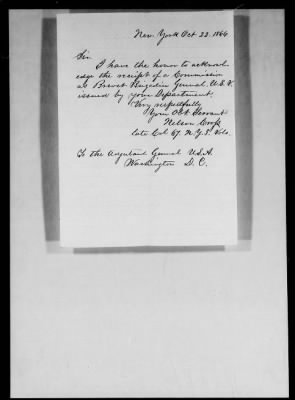 New York Oct 23. 1866
Sir
I have the honor to acknowl-
edge the receipt of a Commission
as Brevet Brigadier General, U.S.V.
issued by your Department.
Very respectfully
Your Obt Servant
Nelson Cross
late Col 67. N.Y.S. Vols.
To the Adjutant General U.S.A.
Washington D.C.